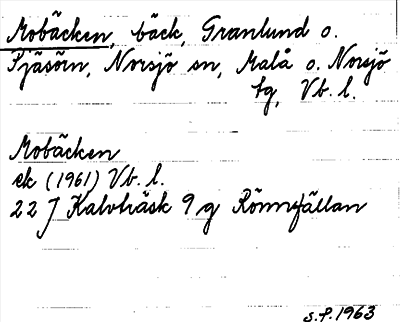 Mobäcken, bäck, Granlund o.
Pjäsörn, Norsjö sn, Malå o. Norsjö
tg, Vb. l.
Mobäcken
ek (1961) Vb. l.
22 J Kalvträsk 9 g Rönnfällan
s.f. 1963